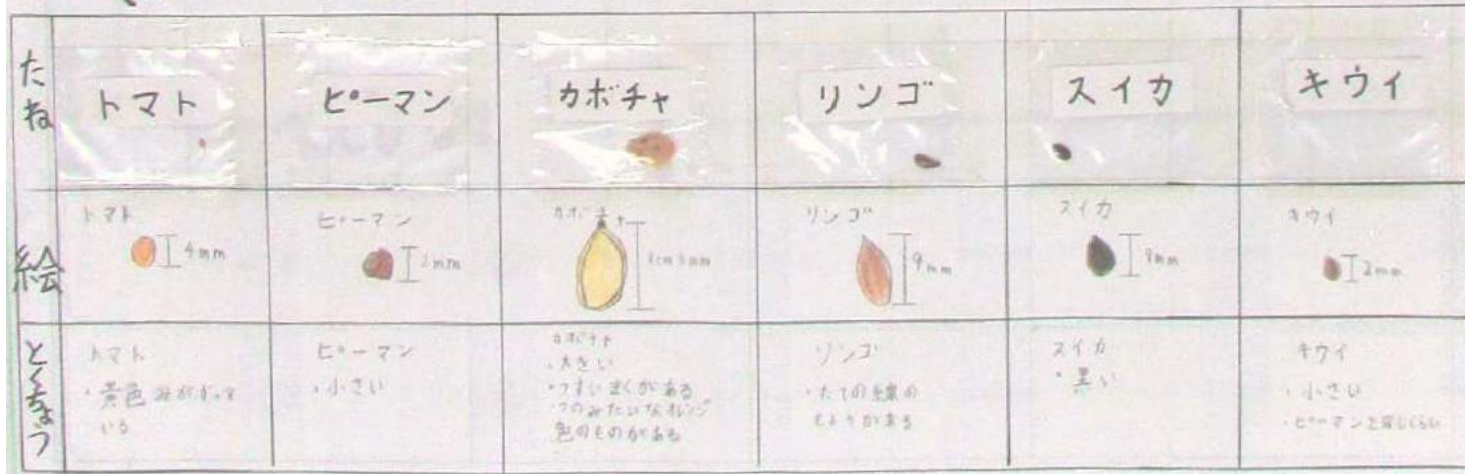 たね
トマト
ピーマン
カボチャ
リンゴ
スイカ
キウイ
絵
トマト
4mm
ピーマン
2mm
カボチャ
リンゴ
9mm
スイカ
9mm
キウイ
2mm
とくちょう
トマト
・黄色みがかって
いる
ピーマン
・小さい
カボチャ
・大きい
・うすいまくがある
・つのみたいなオレンジ
色のものがある
リンゴ
・たての線の
もようがある
スイカ
・黒い
キウイ
・小さい
・ピーマンと同じくらい